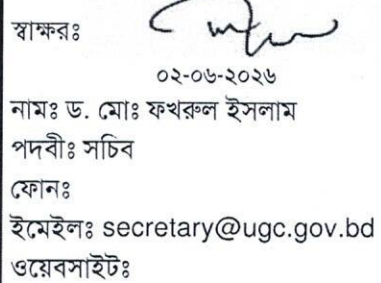 স্বাক্ষরঃ
০২-০৬-২০২৬
নামঃ ড. মোঃ ফখরুল ইসলাম
পদবীঃ সচিব
ফোনঃ
ইমেইলঃ secretary@ugc.gov.bd
ওয়েবসাইটঃ